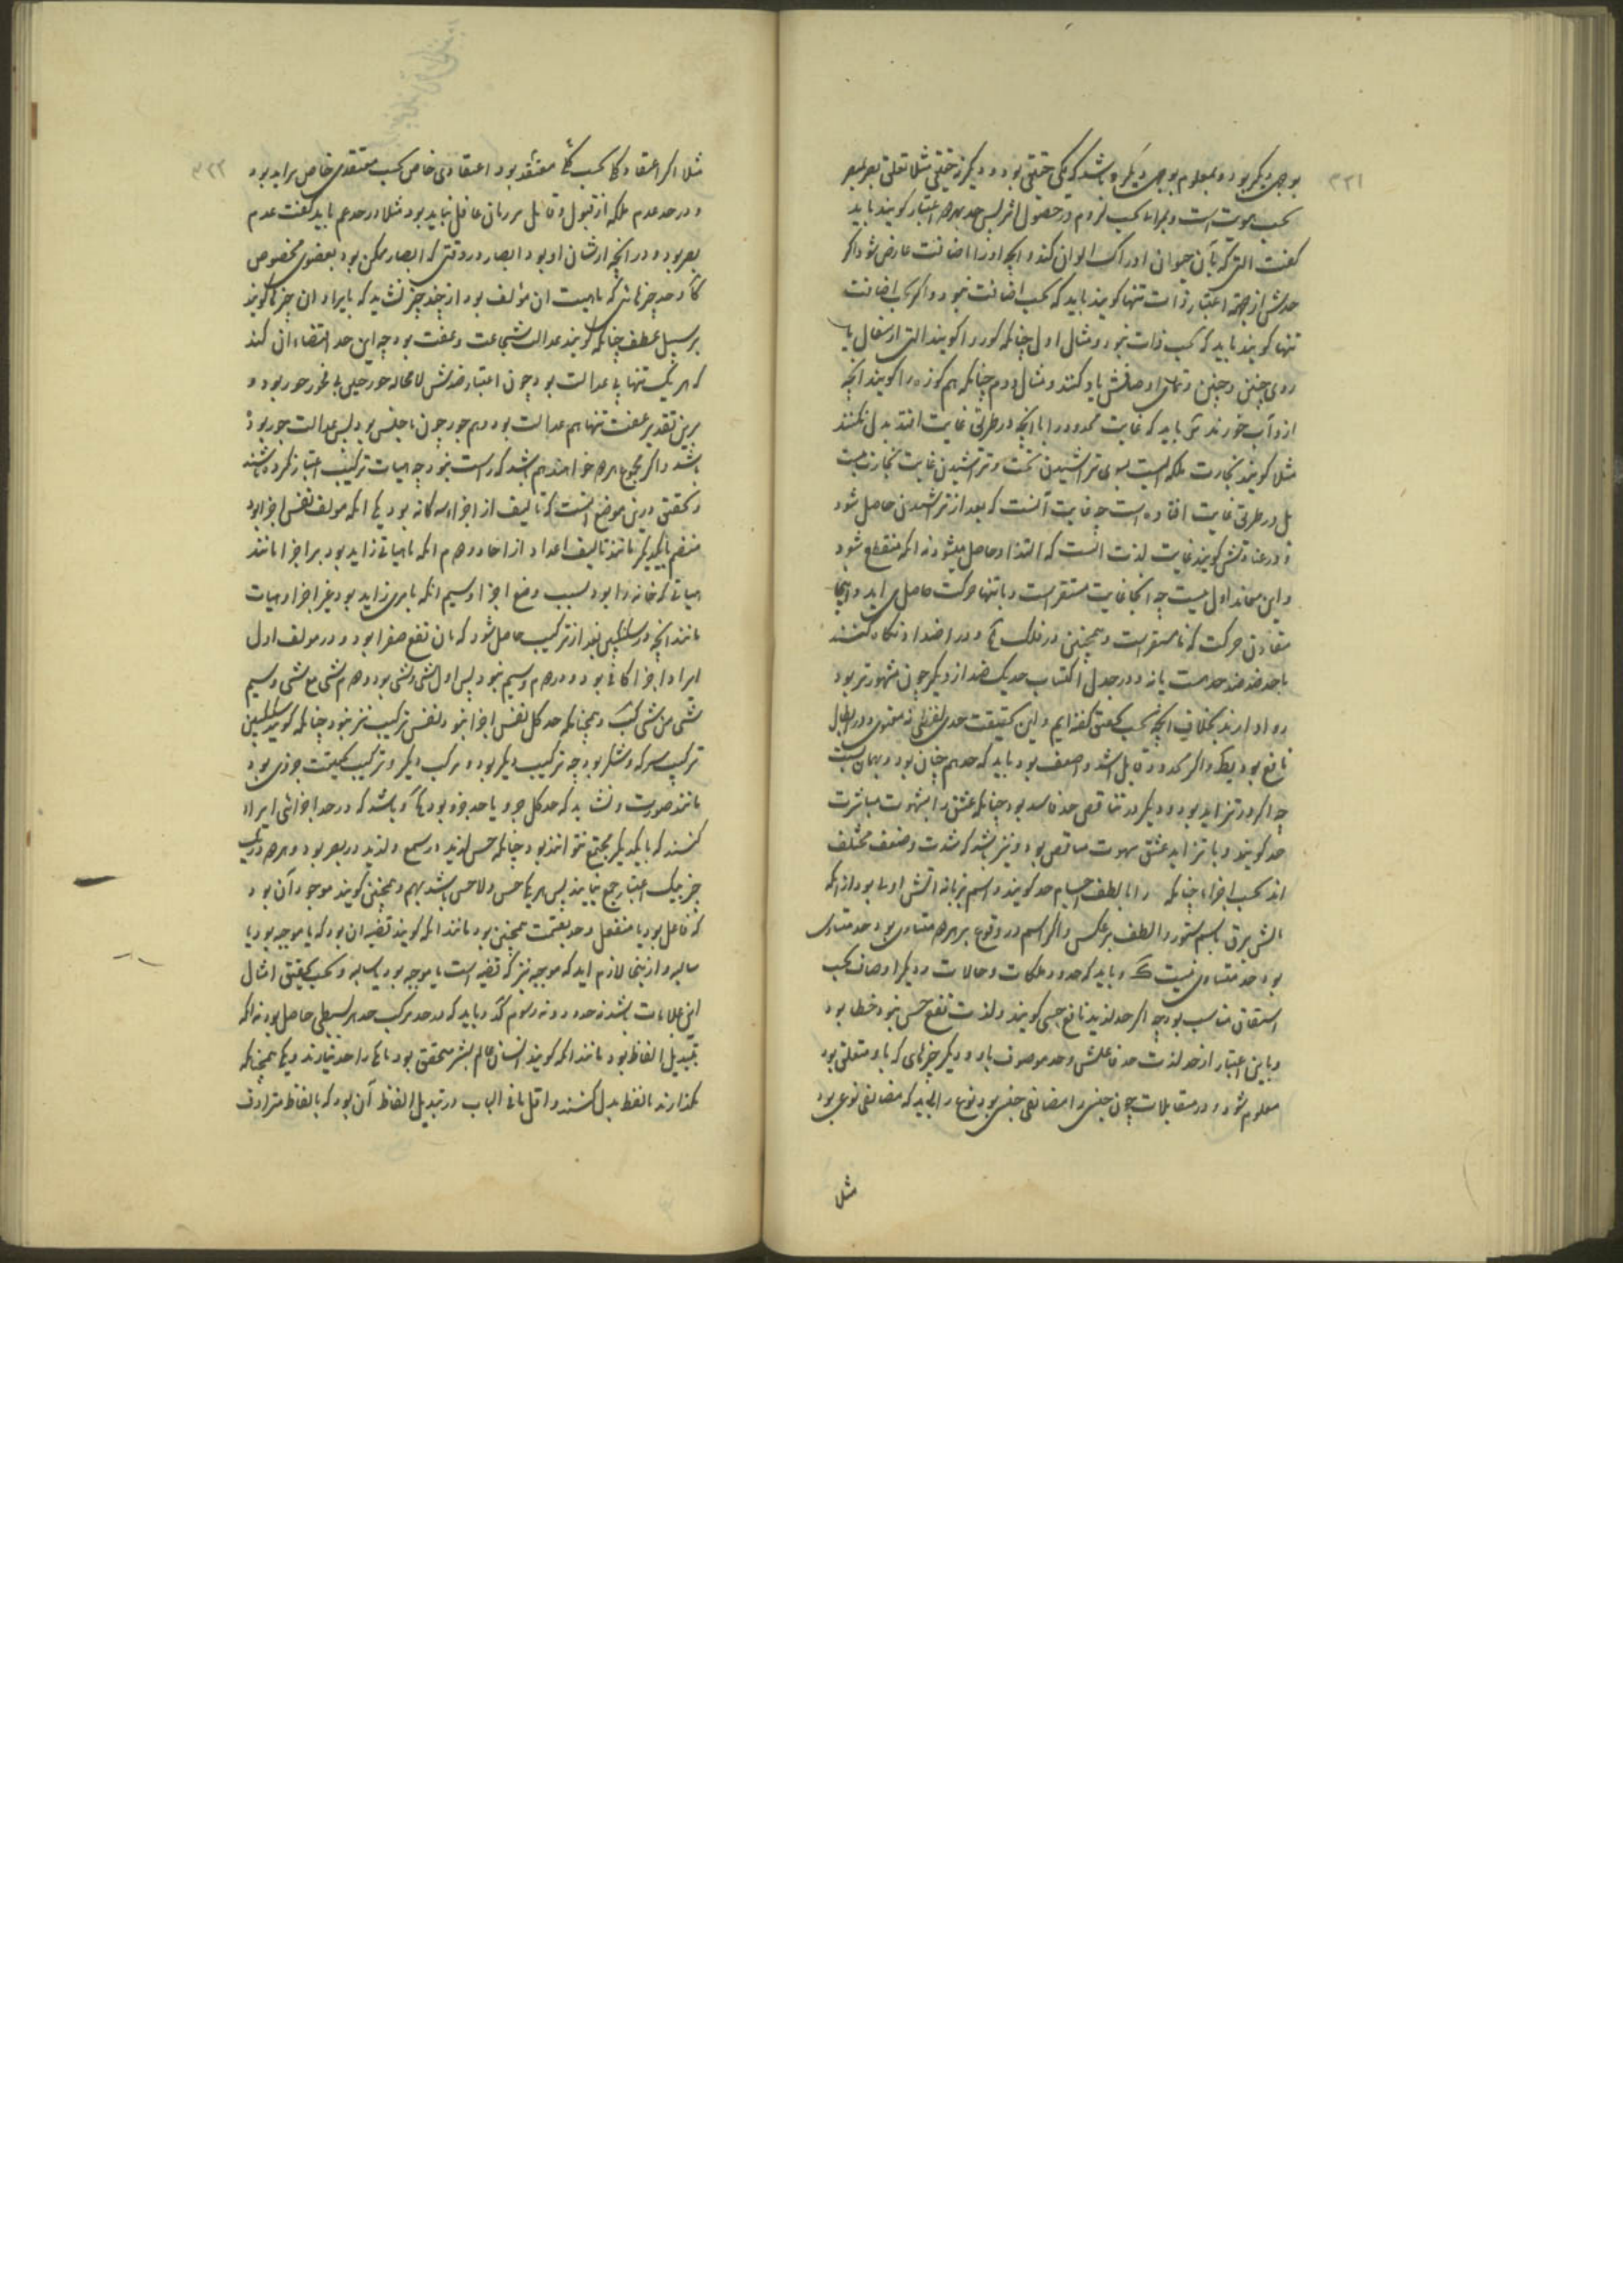 ۳۳۱
بوجهی دیگر بود و بمعلوم بوجهی دیگر و باشد که یکی حقیقی بود و دیگر نه حقیقی مثلا تعلق بصر بمبصر
کفت التی که بآن حیوان ادراک الوان کند و آنچه او را اضافت عارض شود اکر
حدش از جهة اعتبار ذات تنها کویند باید که بحسب اضافت نبود و اکر بحسب اضافت
تنها کویند باید که بحسب ذات نبود و مثال اول چنانکه کوزه را کویند التی از سفال با
روی چنین و چنین و تمامی اوصافش یاد کنند و مثال دوم چنانکه هم کوزه را کویند آنچه
ازو آب خورند و باید که غایت محدود را با آنچه در طریق غایت افتد بدل نکنند
مثلا کویند نجارت ملکه ایست بسوی تراشیدن تخت و تراشیدن غایت نجارت نیست
بل در طریق غایت افتاده است چه غایت آنست که بعد از تراشیدن حاصل شود
و این مانند اول نیست چه آنجا غایت مستقر است و بانتهاء حرکت حاصل می اید و اینجا
مقارن حرکت که نامستقر است و همچنین در فلک و در اضداد نکاه کنند
تا حد ضد ضد حد هست یا نه و در جدل اکتساب حد یک ضد از دیکر چون مشهورتر بود
روا دارند بخلاف آنچه بحسب تحقیق کفته ایم و این بحقیقت حدی لفظی نه معنوی و در ابطال
نافع بود و اکر محدود قابل اشد و اضعف بود باید که حد هم چنان بود و بهمان نسبت
چه اکر در تزاید بود و دیکر در تناقص حد فاسد بود چنانکه عشق را بشهوت مباشرت
حد کویند و با تزاید عشق شهوت متناقص بود و نیز باشد که شدت و ضعف مختلف
افتد بحسب اجزا چنانکه را بالطف اجسام حد کویند و اسم بزبانه آتش اولی بود از آنکه
باسم و الطف برعکس و اکر اسم در وقوع بر هر دو متساوی بود و حد متساوی
بود حد متساوی نیست و باید که حدود ملکات و حالات و دیکر اوصاف بحسب
اشتقاق مناسب بود چه اکر حد لذیذ نافع حسی کویند و لذت نفع حسی نبود خطا بود
و باین اعتبار از حد لذت حد فاعلش و حد موصوف باو و دیکر چیزهای که باو متعلق بود
معلوم شود و در متقابلات چون جنس را مضایفی جنسی بود نوع را باید که مضایفی نوعی بود
مثلا
۳۳۲
مثلا اکر اعتقاد کلی بحسب کلی معتقد بود اعتقادی خاص بحسب معتقدی خاص براید بود
و در حد عدم ملکه از قبول و قابل و زمان غافل نباید بود مثلا در حد عمی باید کفت عدم
بصر بود در آنچه از شان او بود ابصار در وقتی که ابصار ممکن بود بعضوی مخصوص
و حد چیزهائی که ماهیت ان مؤلف بود از چند چیز نشاید که بایراد ان چیزها کویند
برسبیل عطف چنانکه کویند عدالت شجاعت و عفت بود چه این حد اقتضاء ان کند
که هر یک تنهایی عدالت بود و چون اعتبار ضدش لا محاله جور جبن بی فجور جور بود و
برین تقدیر عفت تنها هم عدالت بود و هم جور چون با جبن بود پس عدالت جور بوده
باشد و اکر مجموع هر دو خواهند هم باشد که راست نبود چه هیات ترکیب اعتبار نکرده باشند
و تحقیق درین موضع آنست که تالیف از اجزاء سه کانه بود یکی آنکه مولف نفس اجزا بود
منضم با یکدیکر مانند تالیف اعداد از احاد و دوم آنکه با هیاتی زاید بود بر اجزا مانند
هیاتی که خانه را بود بسبب وضع اجزا و سیم آنکه با مری زاید بود غیر اجزا و هیات
مانند آنچه در سکنجبین بعد از ترکیب حاصل شود که بان نفع صفرا بود و در مولف اول
ایراد اجزا کافی بود و در دوم و سیم نبود پس اول شی و شی بود و دوم شی مع شی و سیم
شی من شی و همچنانکه حد کل نفس اجزا نبود نفس ترکیب نیز نبود چنانکه کویند سکنجبین
ترکیب سرکه و شکر بود چه ترکیب دیکر بود و مرکب دیکر و ترکیب بحقیقت جزوی بود
مانند صورت و نشاید که حد کل جزو یا حد جزو بود و باشد که در حد اجزائی ایراد
کنند که با یکدیکر مجتمع نتوانند بود چنانکه حسن لذیذ در سمع و لذیذ در بصر بود و هر دو در یک
چیز بیک اعتبار جمع نیایند پس هر یکی حسن و لاحسن باشد بهم و همچنین کویند موجود آن بود
که فاعل بود یا منفعل و حد بقسمت همچنین بود مانند آنکه کویند قضیه ان بود که یا موجبه بود یا
سالبه و ازینجا لازم اید که موجبه نیز که قضیه است یا موجبه بود یا سالبه و بحسب تحقیق امثال
این علامات باشد نه حدود و نه رسوم و باید که در حد مرکب حد هر بسیطی حاصل بود نه آنکه
تبدیل الفاظ بود مانند آنکه کویند انسان عالم بشر متحقق بود یا یکی را حد نیارند و یکی همچنانکه
بکذارند یا لفظ بدل کنند و اقل ما فی الباب در تبدیل الفاظ آن بود که بالفاظ مترادف